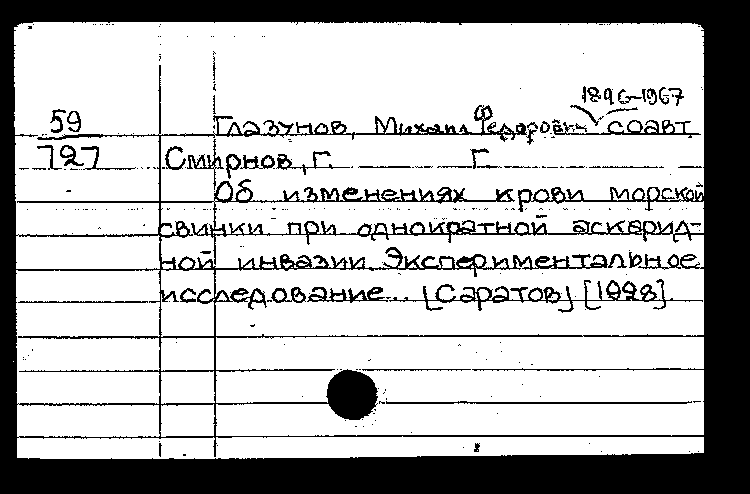 1896-1967
59
727
Глазунов, Михаил Федорович соавт.
Смирнов, Г. Г.
Об изменениях крови морской
свинки при однократной аскарид-
ной инвазии. Экспериментальное
исследование... [Саратов] [1928].